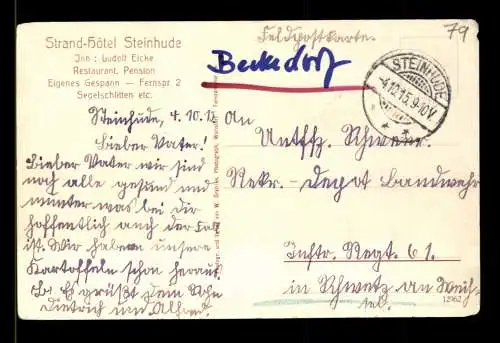 Strand-Hôtel Steinhude
Inh: Ludolf Eicke
Restaurant. Pension
Eigenes Gespann — Fernspr 2
Segelschlitten etc.
Feldpostkarte.
79
Beckedorf
STEINHUDE
-4.10.15.9-10V.
Steinhude, 4.10.15
Lieber Vater!
Lieber Vater wir sind
noch alle gesund und
munter was bei dir
hoffentlich auch der Fall
ist. Wir haben unsere
Kartoffeln schon heraus.
Es grüßt dein Sohn
Dietrich und Alfred
An
Untffz. Schwerr.
Rekr.-Depot Landwehr
Inftr. Regt. 61.
in Schwetz an Weich-
sel.
12962